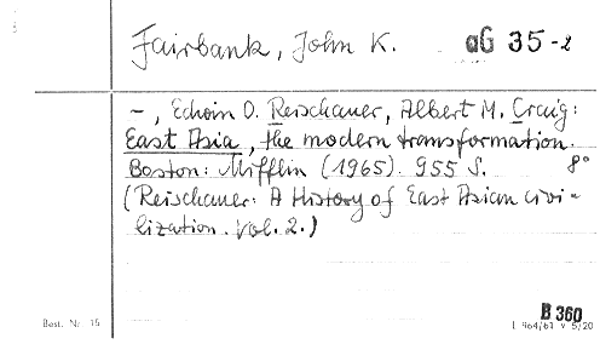 Fairbank, John K. aG 35-2
–, Edwin O. Reischauer, Albert M. Craig:
East Asia, the modern transformation.
Boston: Mifflin (1965). 955 S. 8°
(Reischauer: A History of East Asian civi-
lization. Vol. 2.)
Best. Nr. 15
B 360
I 964/61 v 5/20